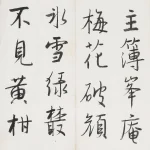 主簿峯庵
梅花破顏
冰雪綠叢
不見黃柑